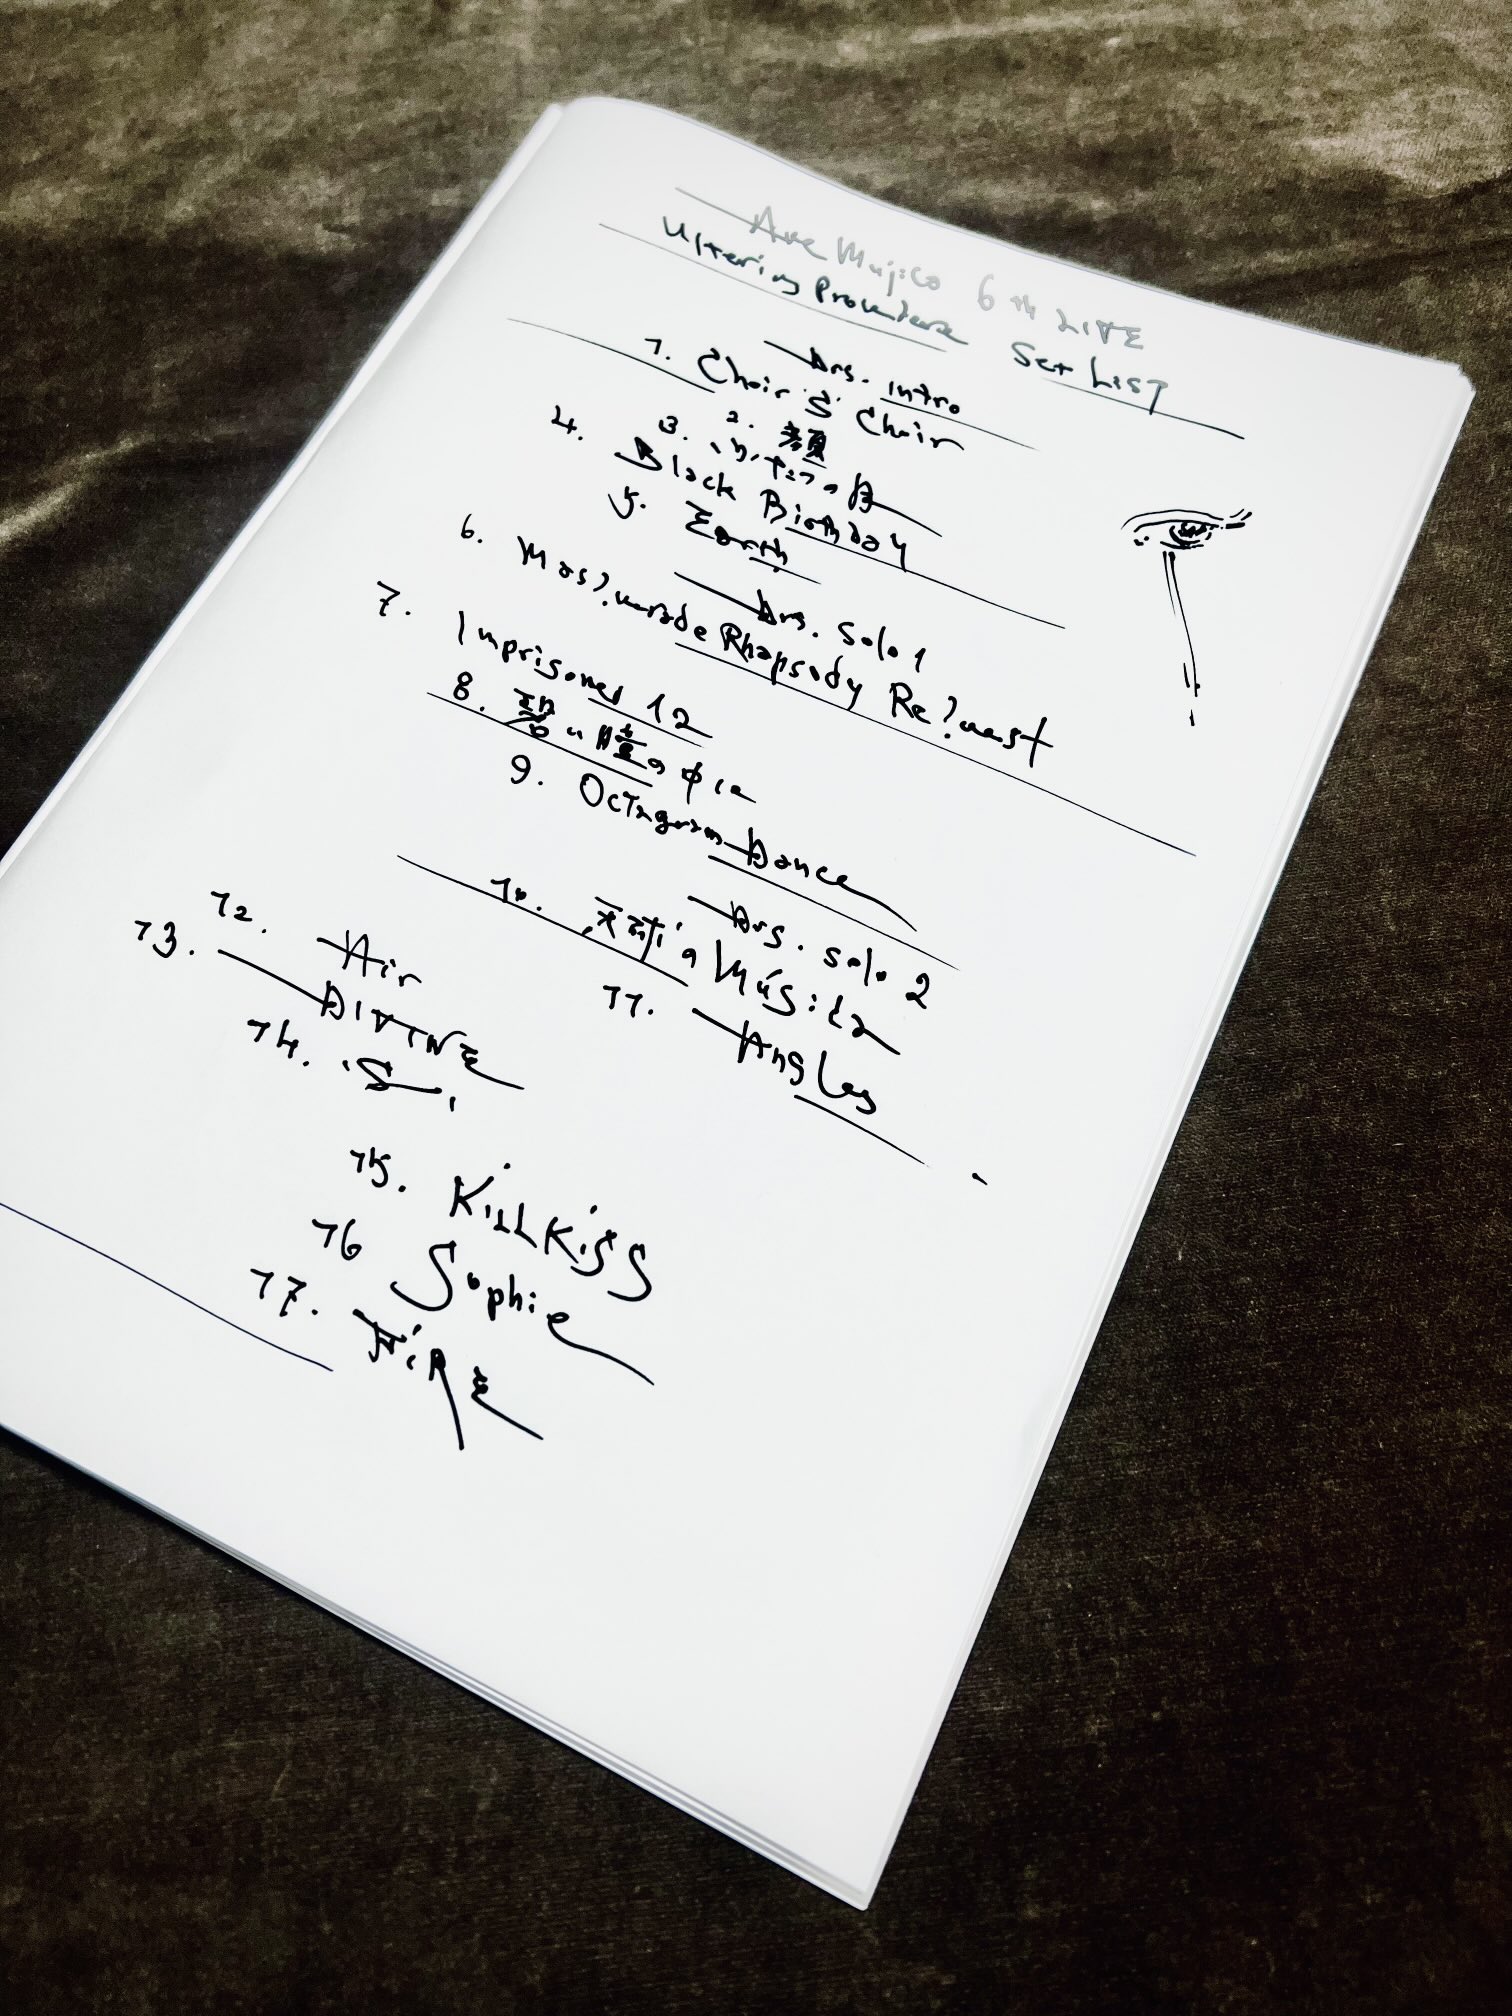 Ave Mujica 6th LIVE
Ulterius Procedere Set LIST
Drs. Intro
1. Choir 'S' Choir
2. 顔
3. ふたつの月
4. Black Birthday
5. Earth
Drs. Solo 1
6. Mas?uerade Rhapsody Re?uest
7. Imprisoned 12
8. 暗い瞳の中に
9. Octagram Dance
Drs. solo 2
10. 天球のMúsica
11. Angles
12. Air
13. DIVINE
14. 'S/'
15. KiLLKiSS
16 Sophie
17.